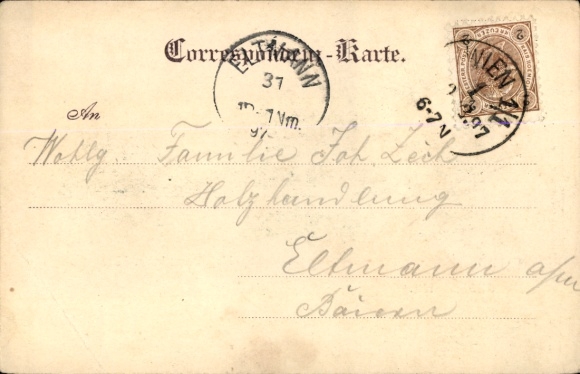 Correspondenz-Karte.
ELTMANN
31
7 Vm.
97
WIEN
97
6-7 N
2
An
Familie Joh. Zeck
Holzhandlung
Eltmann a/m
Baiern